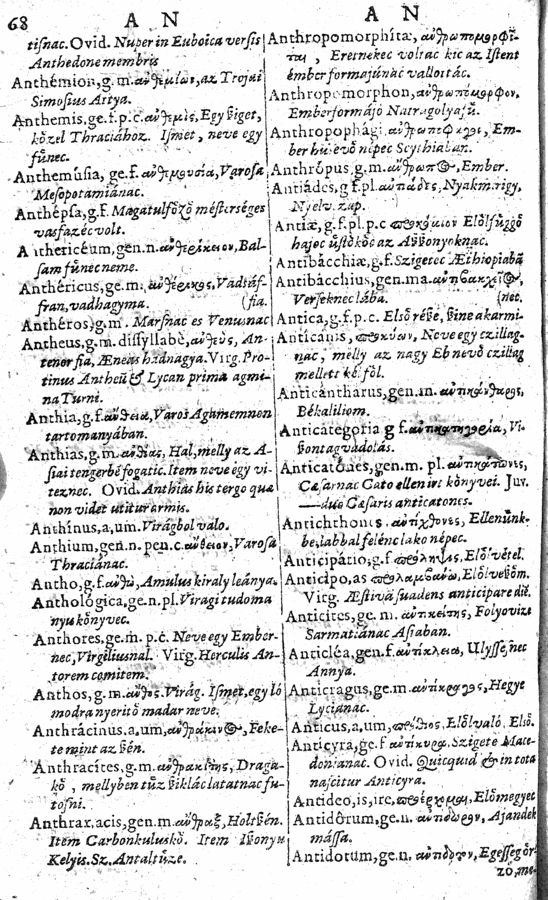 68
A N
tisnac. Ovid. Nuper in Euboica versis
Anthedone membris
Anthémion, g.m. az Trojai
Simosius Attya.
Anthemis, ge.f.p.c. Egy ßiget,
kőzel Thraciához. Ismet, neve egy
fűnec.
Anthemúsia, ge.f. Varosa
Mesopotamiánac.
Anthépsa, g.f. Magatulfőző mesterséges
vasfazéc volt.
Anthericéum, gen.n. Bal-
sam fűnec neme.
Anthéricus, ge.m. Vadtáf-
fran, vadhagyma. (fia.
Anthéros, g.m. Marsnac es Venusnac
Antheus, g.m. dissyllabè, An-
tenor fia, Æneas hadnagya. Virg. Pro-
tinus Antheũ & Lycan prima agmi-
na Turni.
Anthia, g.f. Varos Agamemnon
tartomanyában.
Anthias, g.m. Hal, melly az A-
siai tengerbē fogatic. Item neve egy vi-
teznec. Ovid. Anthias his tergo quæ
non videt utitur armis.
Anthínus, a, um. Virágbol valo.
Anthium, gen.n. pen.c. Varosa
Thraciánac.
Antho, g.f. Amulus kiraly leánya.
Anthológica, ge.n.pl. Viragi tudoma
nyu kőnyvec.
Anthores, ge.m. p.c. Neve egy Ember-
nec, Virgiliusnal. Virg. Herculis An-
torem comitem.
Anthos, g.m. Virág. Ismet, egy ló
modra nyeritő madar neve.
Anthrácinus, a, um, Feke-
te mint az ßén.
Anthracítes, g.m. Draga-
kő, mellyben tűz ßiklác latatnac fu-
tosni.
Anthrax, acis, gen.m. Holtßén.
Item Carbonkuluskő. Item Ißonyu
Kelyis. Sz. Antaltűze.
A N
Anthropomorphítæ,
Eretnekec voltac kic az Istent
ember formajúnác vallottác.
Anthropomorphon,
Emberformájo Natragolyafű.
Anthropophági, Em-
ber husevő nepec Scythiaban.
Anthrópus, g.m. Ember.
Antiádes, g.f.pl. Nyakmirigy,
Nyelv zap.
Antiæ, g.f.pl.p.c Elől fűggő
hajec űstőkőc az Aßßonyoknac.
Antibácchiæ, g.f. Szigetec Æthiopiabā
Antibácchius, gen.ma.
Verseknec lába. (net.
Antica, g.f.p.c. Első réße, ßine akarmi-
Anticanis, Neve egy czillag-
nac, melly az nagy Eb nevő czillag
mellett kél fől.
Anticántharus, gen.m.
Békaliliom.
Anticategoria g f. Vi-
ßontagvádolás.
Anticatónes, gen.m. pl.
Cæsarnac Cato ellen irt kőnyvei. Juv.
—duo Cæsaris anticatones.
Antichthones, Ellenünk-
be labbal felénc lako népec.
Anticipátio, g.f. Elől vétel.
Anticipo, as Elől veßőm.
Virg. Æstivā suadens anticipare diē.
Anticites, ge.m. Folyovize
Sarmatiánac Asiaban.
Anticléa, gen.f. Ulyssesnec
Annya.
Anticragus, ge.m. Hegye
Lycianac.
Anticus, a, um, Elől való, Első.
Anticyra, ge.f. Szigete Mace-
donianac. Ovid. Quicquid & in tota
nascitur Anticyra.
Antideo, is, ire, Előmegyec
Antidórum, ge.n. Ajandek
mássa.
Antidotum, ge.n. Egesseg őr-
ző, me-